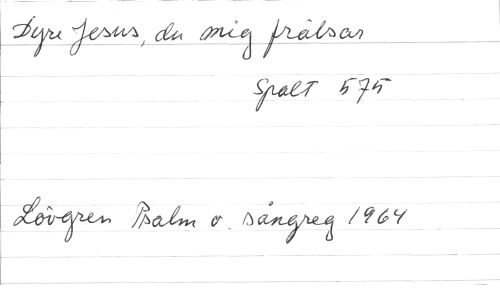 Dyre Jesus, du mig frälsar
Spalt 575
Lövgren Psalm o. sångreg 1964